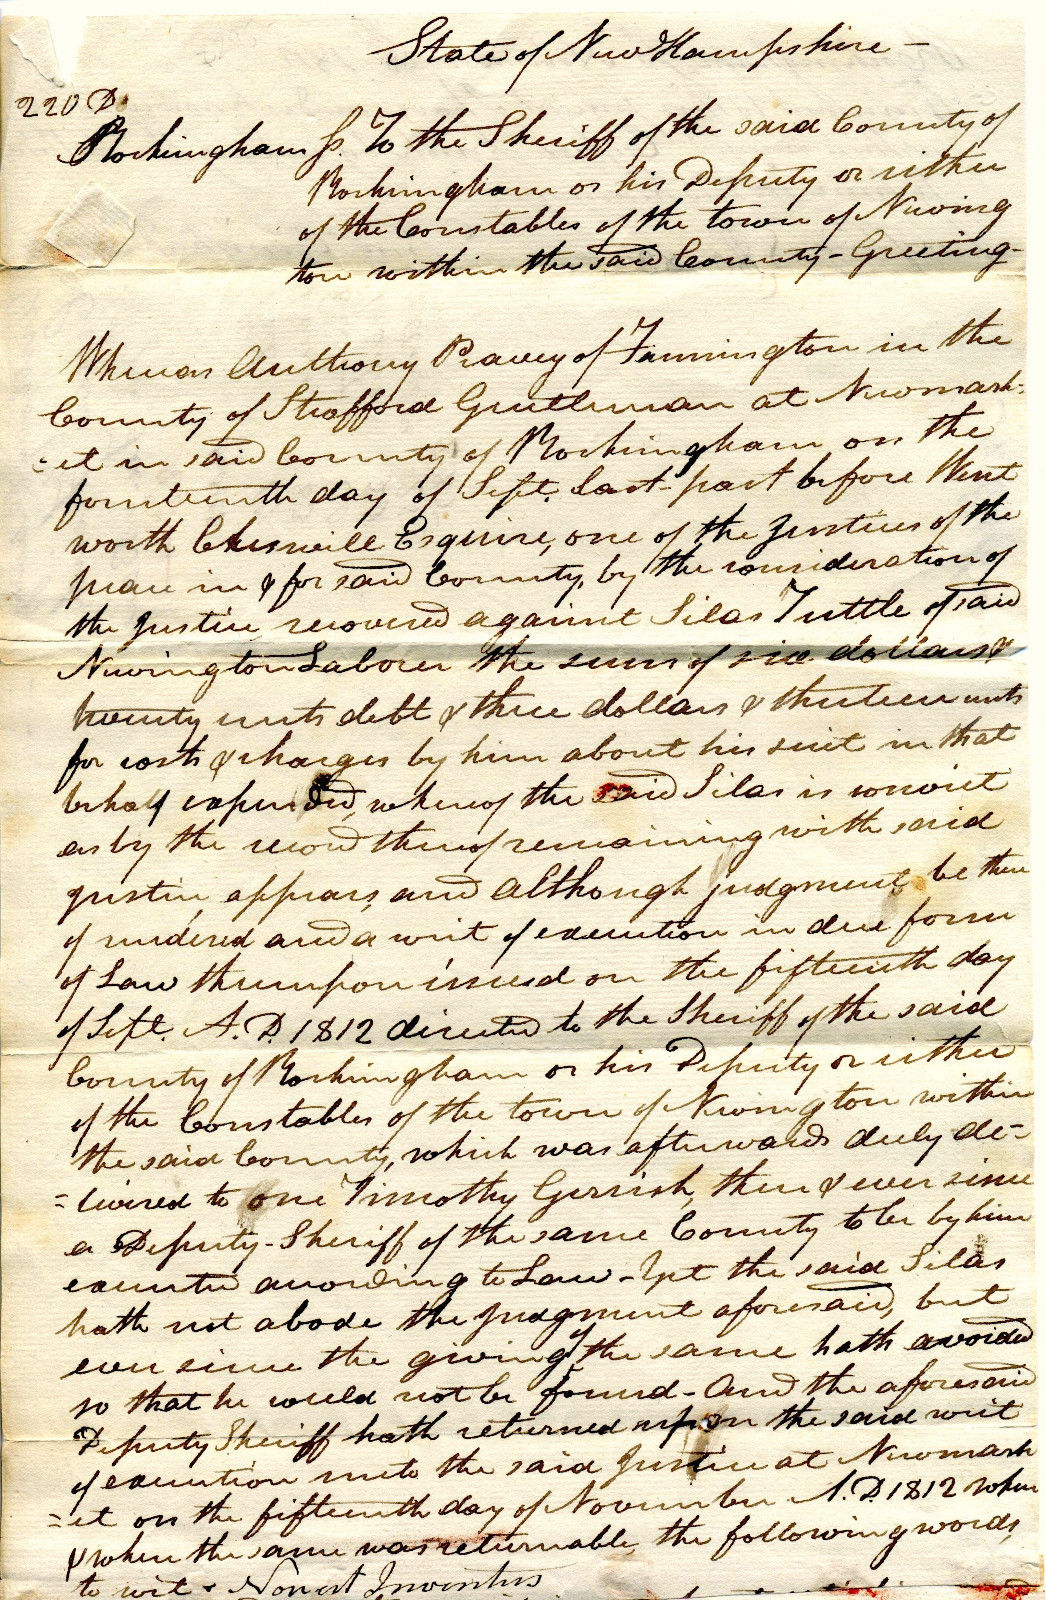 State of New Hampshire -
220 D.
Rockingham Ss. To the Sheriff of the said County of
Rockingham or his Deputy or either
of the Constables of the town of Newing
ton within the said County - Greeting -
Whereas Anthony Peavey of Farmington in the
County of Strafford Gentleman at Newmark=
=et in said County of Rockingham on the
fourteenth day of Sept. last past before Went
worth Cheswill Esquire, one of the Justices of the
peace in & for said County, by the consideration of
the Justice, recovered against Silas Tuttle of said
Newington Laborer the sum of six dollars &
twenty cents debt & three dollars & thirteen cents
for costs & charges by him about his suit in that
behalf expended, whereof the said Silas is convict
as by the record thereof remaining with said
Justice, appears, and although judgment be there
of rendered and a writ of execution in due form
of Law thereupon issued on the fifteenth day
of Sept. A.D. 1812 directed to the Sheriff of the said
County of Rockingham or his Deputy or either
of the Constables of the town of Newington within
the said County, which was afterwards duly de=
=livered to one Timothy Gerrish, then & ever since
a Deputy-Sheriff of the same County to be by him
executed according to Law - Yet the said Silas
hath not abode the judgment aforesaid, but
ever since the giving of the same hath avoided
so that he could not be found - And the aforesaid
Deputy Sheriff hath returned upon the said writ
of execution unto the said Justice at Newmark
=et on the fifteenth day of November A.D. 1812 when
& when the same was returnable, the following words,
to wit - Non est Inventus